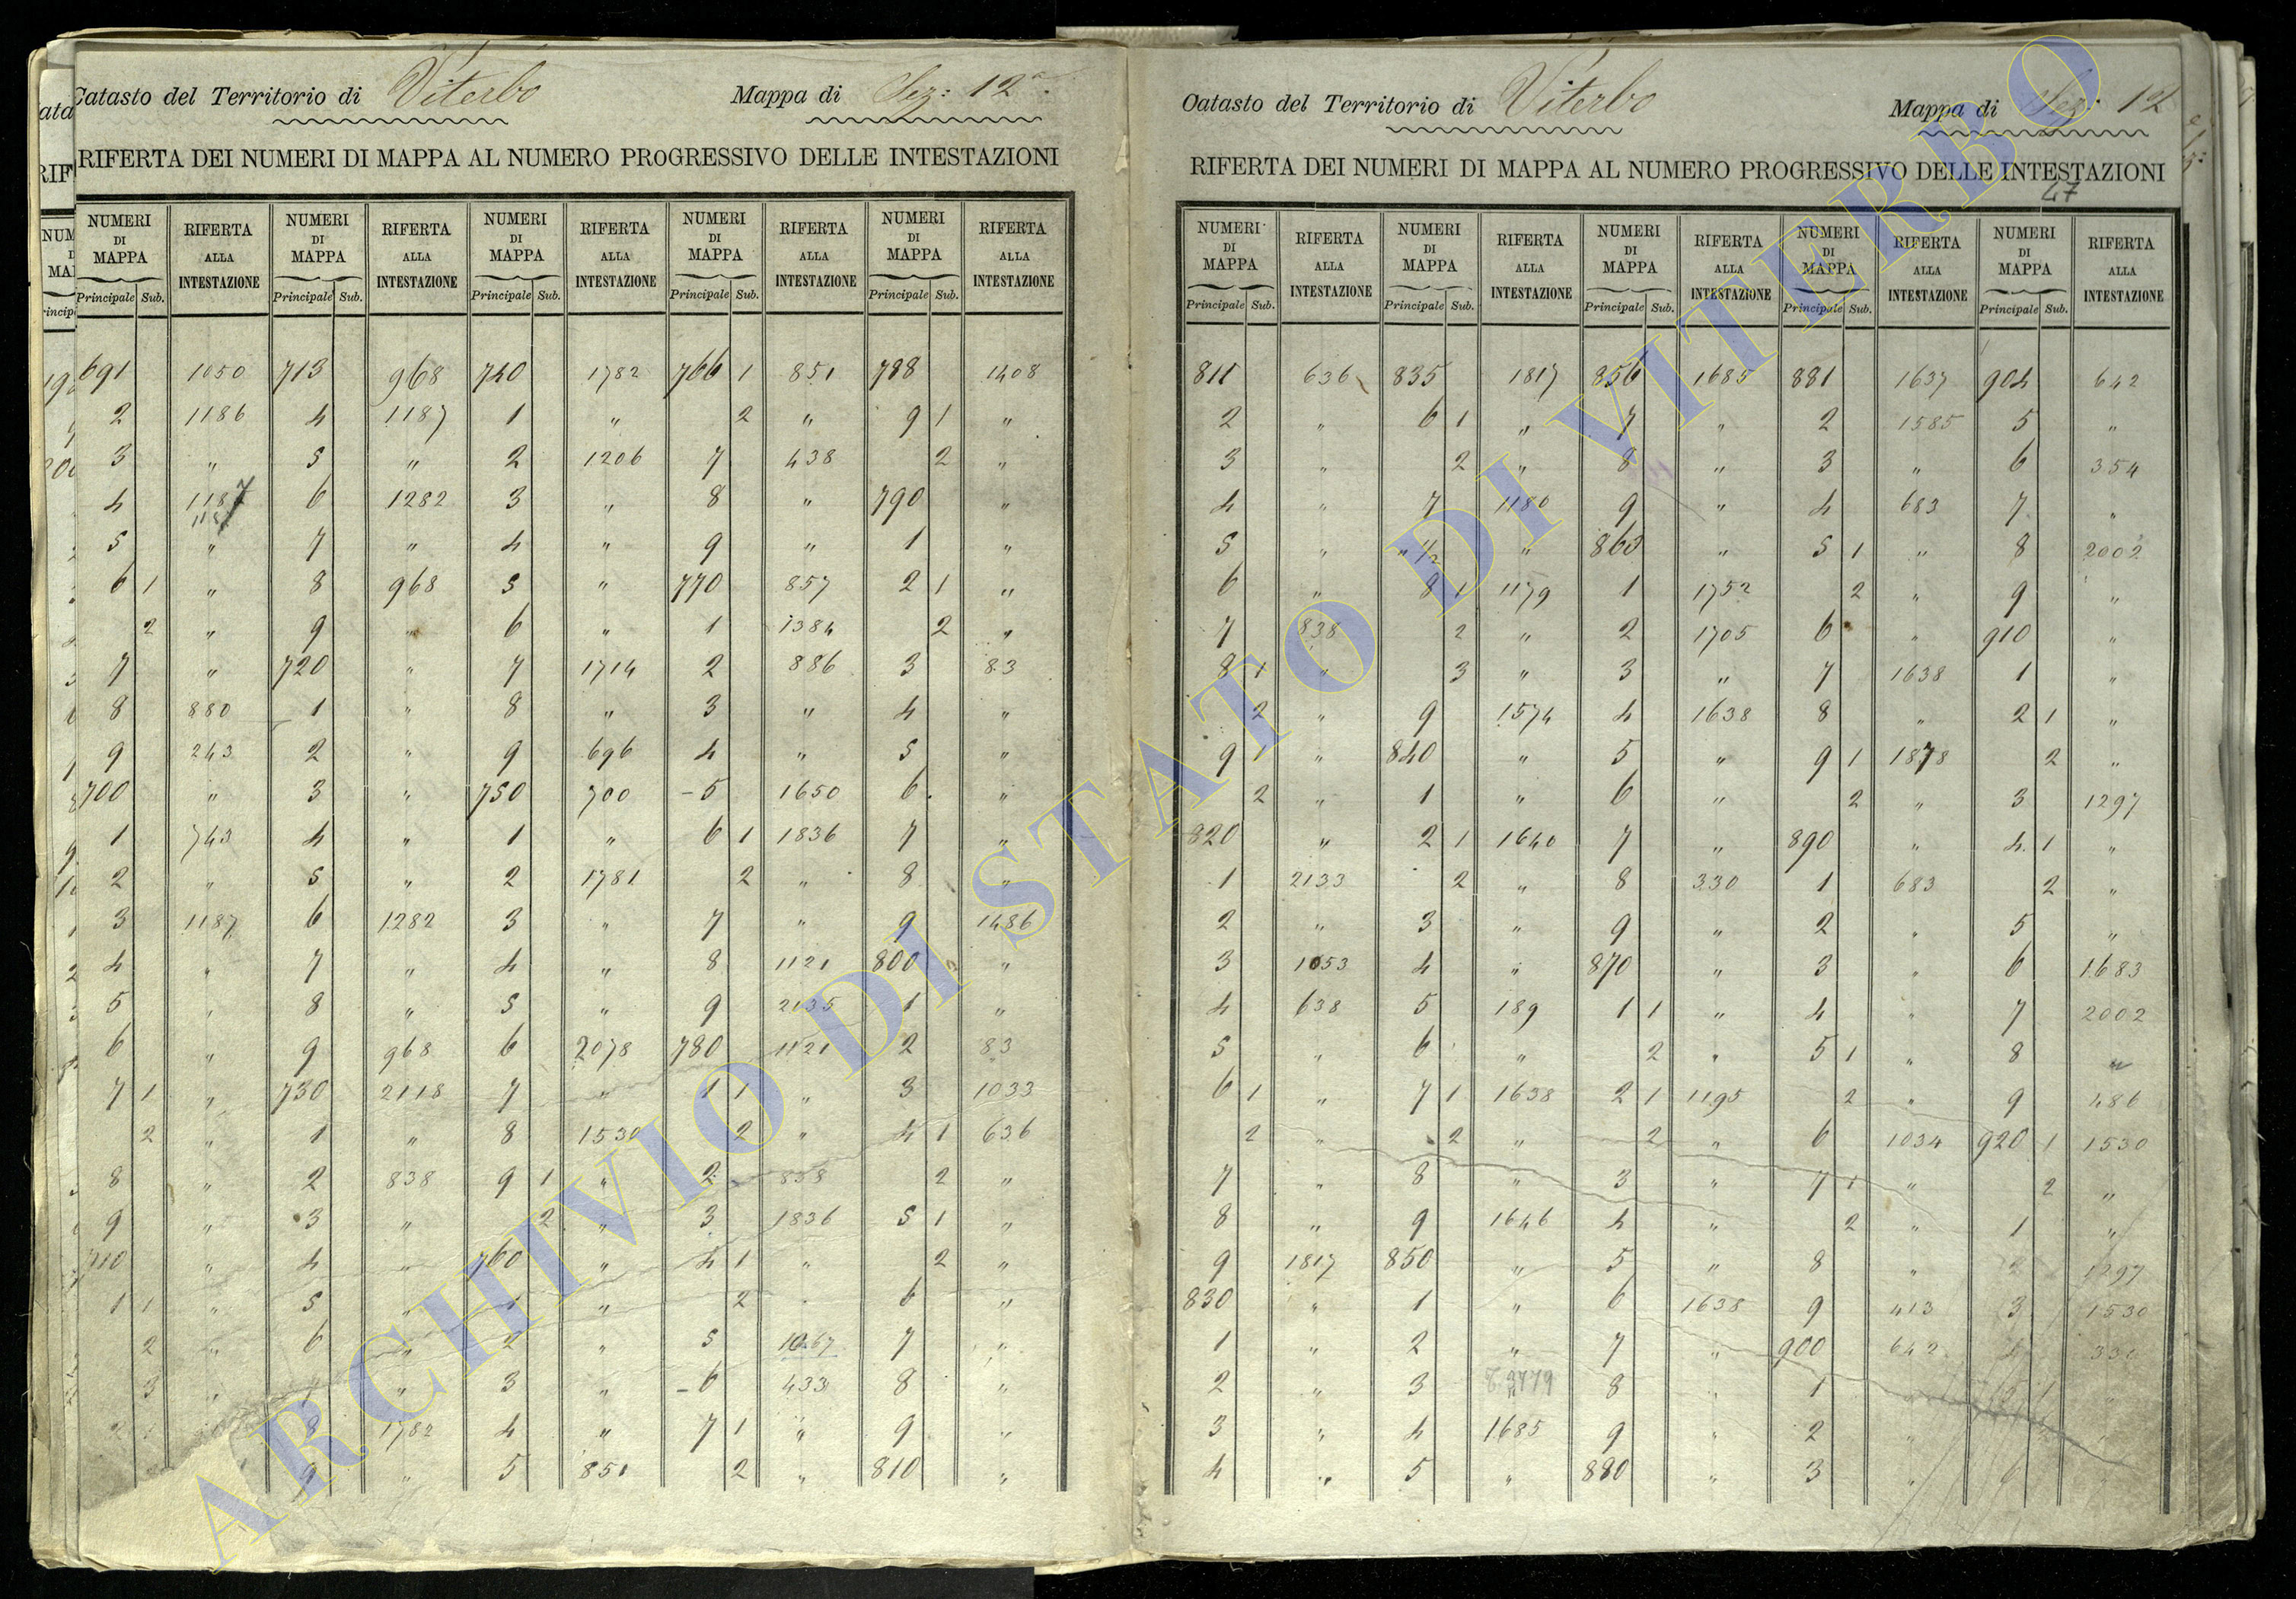 Catasto del Territorio di Viterbo Mappa di Sez: 12ª
RIFERTA DEI NUMERI DI MAPPA AL NUMERO PROGRESSIVO DELLE INTESTAZIONI
NUMERI DI MAPPA RIFERTA ALLA INTESTAZIONE NUMERI DI MAPPA RIFERTA ALLA INTESTAZIONE NUMERI DI MAPPA RIFERTA ALLA INTESTAZIONE NUMERI DI MAPPA RIFERTA ALLA INTESTAZIONE NUMERI DI MAPPA RIFERTA ALLA INTESTAZIONE
Principale Sub. Principale Sub. Principale Sub. Principale Sub. Principale Sub.
691 1050 713 968 740 1782 766 1 851 788 1408
2 1186 4 1187 1 " 2 " 9 1 "
3 " 5 " 2 1206 7 438 2 "
4 1187 6 1282 3 " 8 " 790 "
5 " 7 " 4 " 9 " 1 "
6 1 " 8 968 5 " 770 857 2 1 "
2 " 9 " 6 " 1 1384 2 "
7 " 720 " 7 1714 2 886 3 83
8 880 1 " 8 " 3 " 4 "
9 243 2 " 9 696 4 " 5 "
700 " 3 " 750 700 5 1650 6 "
1 743 4 " 1 " 6 1 1836 7 "
2 " 5 " 2 1781 2 " 8 "
3 1187 6 1282 3 " 7 " 9 1486
4 " 7 " 4 " 8 1121 800 "
5 " 8 " 5 " 9 2135 1 "
6 " 9 968 6 2078 780 1121 2 83
7 1 " 730 2118 7 " 1 1 " 3 1033
2 " 1 " 8 1530 2 " 4 1 636
8 " 2 838 9 1 " 2 838 2 "
9 " 3 " 2 " 3 1836 5 1 "
710 " 4 " 760 " 4 1 " 2 "
1 1 " 5 " 1 " 2 " 6 "
2 " 6 " 2 " 5 1067 7 "
3 " 7 " 3 " 6 433 8 "
8 1782 4 " 7 1 " 9 "
9 " 5 851 2 " 810 "
Catasto del Territorio di Viterbo Mappa di Sez: 12
RIFERTA DEI NUMERI DI MAPPA AL NUMERO PROGRESSIVO DELLE INTESTAZIONI
47
NUMERI DI MAPPA RIFERTA ALLA INTESTAZIONE NUMERI DI MAPPA RIFERTA ALLA INTESTAZIONE NUMERI DI MAPPA RIFERTA ALLA INTESTAZIONE NUMERI DI MAPPA RIFERTA ALLA INTESTAZIONE NUMERI DI MAPPA RIFERTA ALLA INTESTAZIONE
Principale Sub. Principale Sub. Principale Sub. Principale Sub. Principale Sub.
811 636 835 1817 856 1685 881 1637 904 642
2 " 6 1 " 7 " 2 1585 5 "
3 " 2 " 8 " 3 " 6 354
4 " 7 1180 9 " 4 683 7 "
5 " " 1/2 " 860 " 5 1 " 8 2002
6 " 8 1 1179 1 1752 2 " 9 "
7 838 2 " 2 1705 6 " 910 "
8 1 " 3 " 3 " 7 1638 1 "
2 " 9 1574 4 1638 8 " 2 1 "
9 1 " 840 " 5 " 9 1 1878 2 "
2 " 1 " 6 " 2 " 3 1297
820 " 2 1 1640 7 " 890 " 4 1 "
1 2133 2 " 8 330 1 683 2 "
2 " 3 " 9 " 2 " 5 "
3 1053 4 " 870 " 3 " 6 1683
4 638 5 189 1 1 " 4 " 7 2002
5 " 6 " 2 " 5 1 " 8 "
6 1 " 7 1 1638 2 1 1195 2 " 9 486
2 " 2 " 2 " 6 1034 920 1 1530
7 " 8 " 3 " 7 1 " 2 "
8 " 9 1646 4 " 2 " 1 "
9 1817 850 " 5 " 8 " 2 1297
830 " 1 " 6 1638 9 413 3 1530
1 " 2 " 7 " 900 642 330
2 " 3 8 " 1
3 " 4 1685 9 " 2 "
4 " 5 " 880 " 3 "
ARCHIVIO DI STATO DI VITERBO